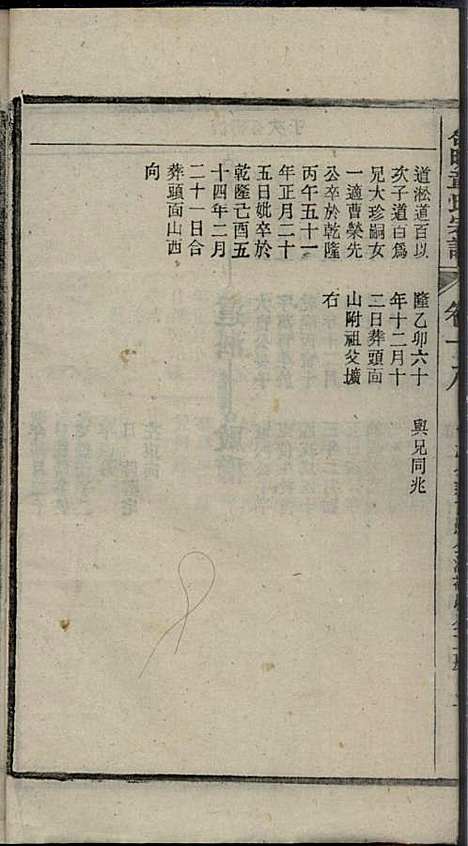 道淞道百以
次子道百為
兄大珍嗣女
一適曹榮先
公卒於乾隆
丙午五十一
年正月二十
五日妣卒於
乾隆己酉五
十四年二月
二十一日合
葬頭面山西
向
隆乙卯六十
年十二月十
二日葬頭面
山附祖父壙
右
與兄同兆
氏宗譜
卷十八